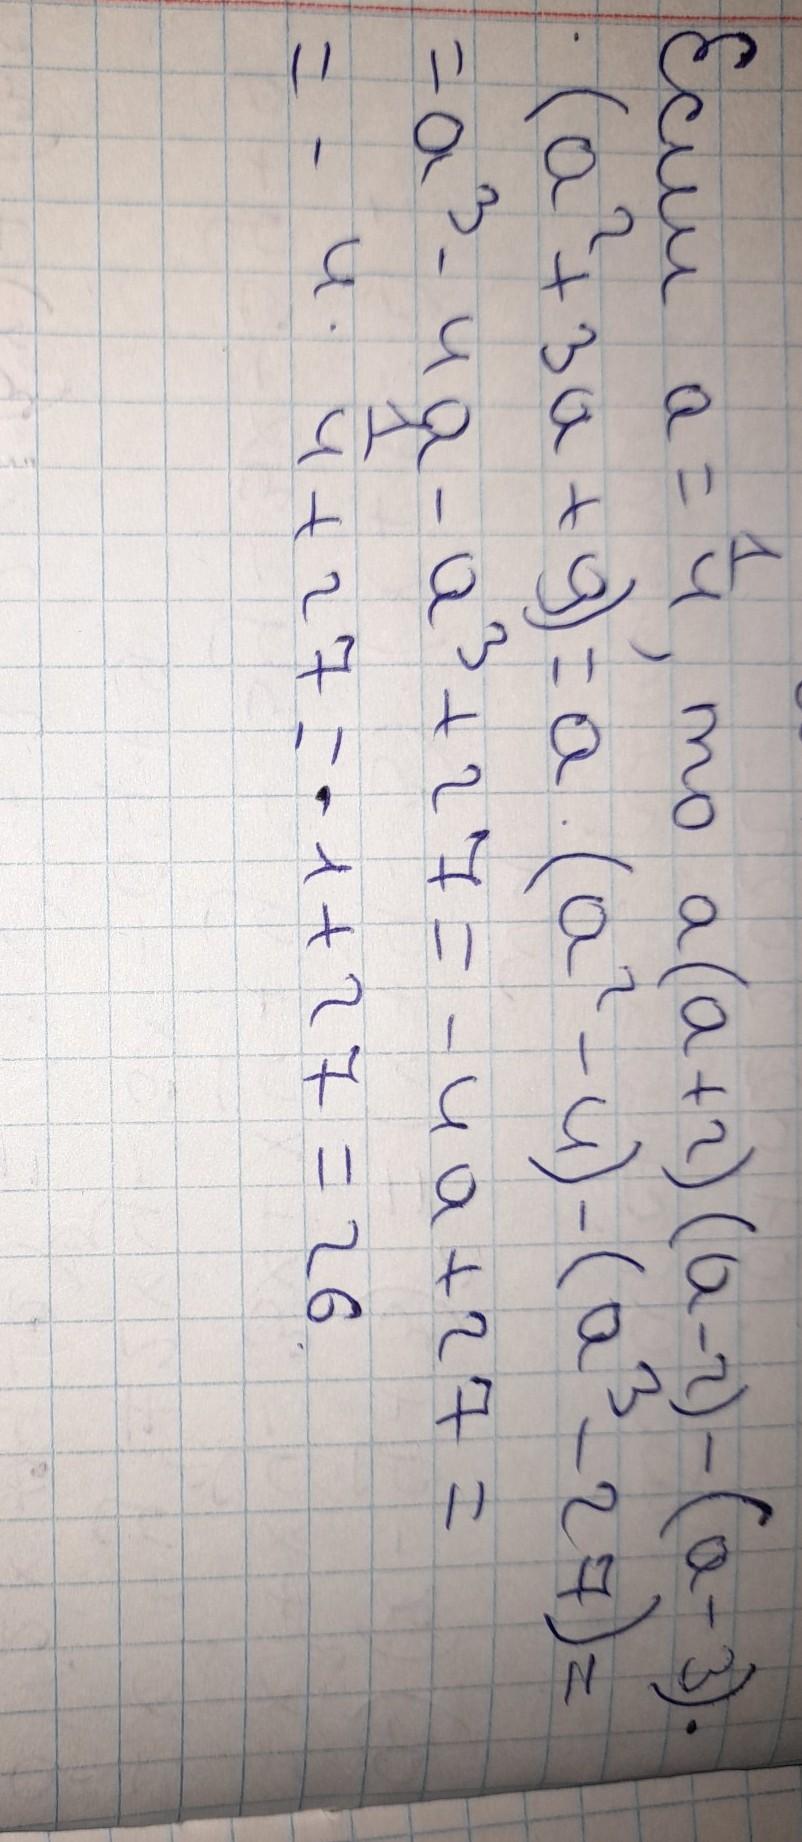 Если a = 1/4, то a(a+2)(a-2) - (a-3)·
·(a² + 3a + 9) = a·(a² - 4) - (a³ - 27) =
= a³ - 4a - a³ + 27 = -4a + 27 =
= - 4 · 1/4 + 27 = - 1 + 27 = 26